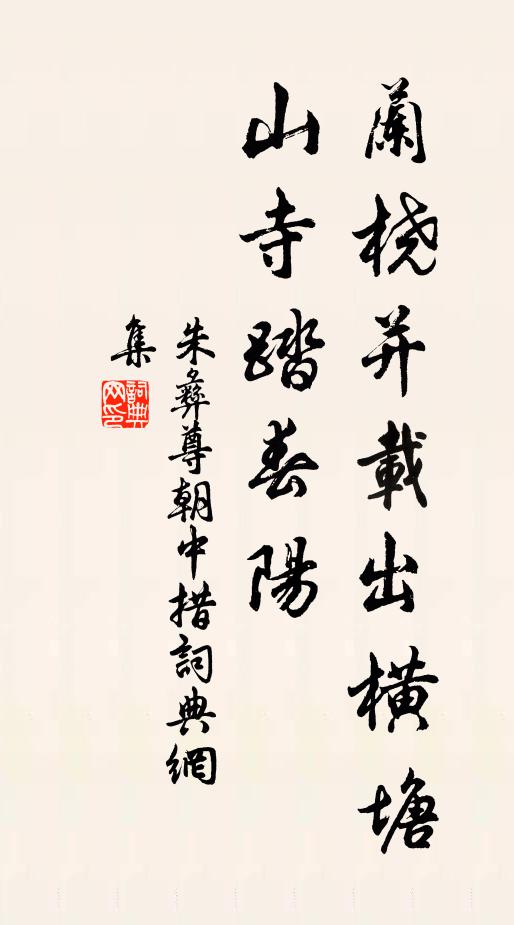 蘭橈并載出橫塘
山寺踏春陽
朱彝尊朝中措詞典網
集
詞典網印